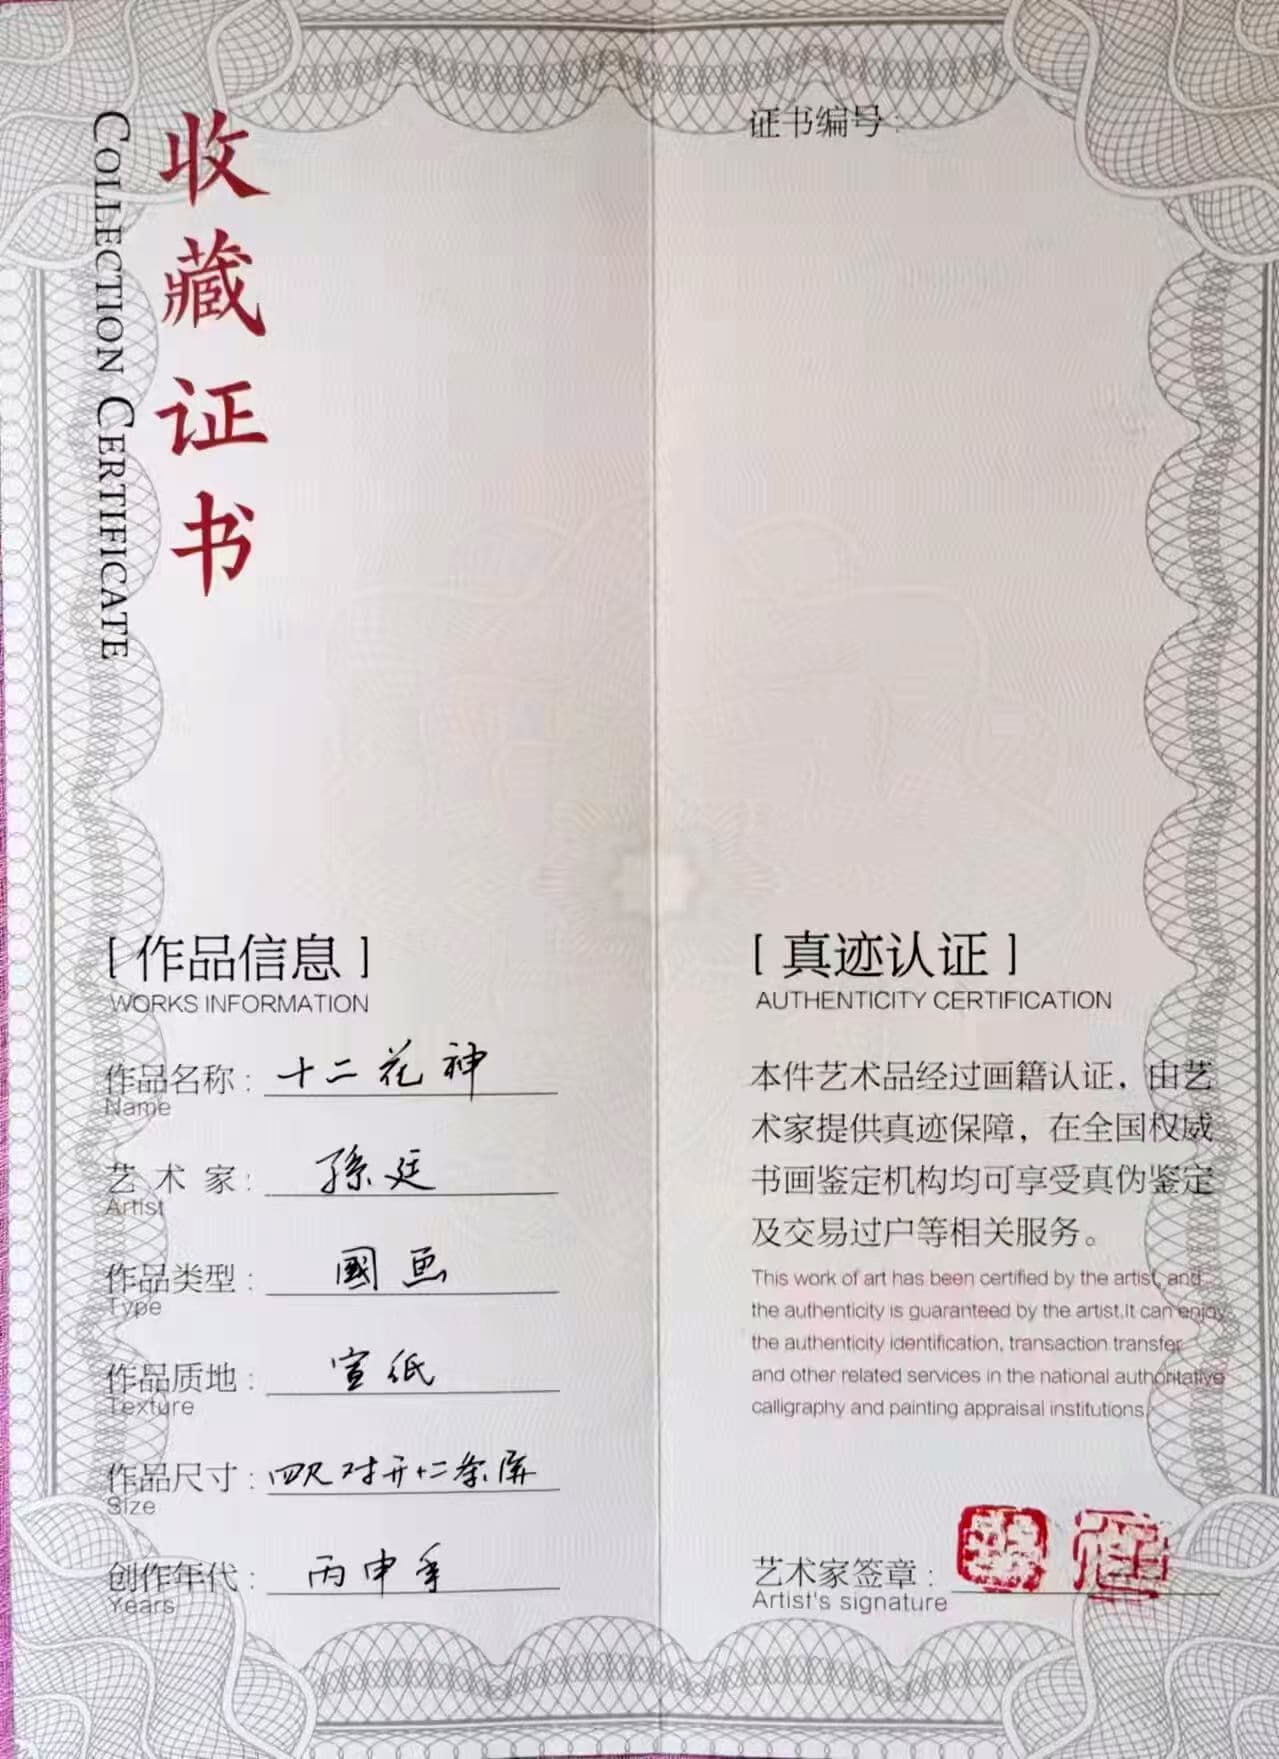 收藏证书
COLLECTION CERTIFICATE
证书编号:
[ 作品信息 ]
WORKS INFORMATION
作品名称: 十二花神
Name
艺术家: 孫廷
Artist
作品类型: 國画
Type
作品质地: 宣纸
Texture
作品尺寸: 四尺对开十二条屏
Size
创作年代: 丙申年
Years
[ 真迹认证 ]
AUTHENTICITY CERTIFICATION
本件艺术品经过画籍认证，由艺
术家提供真迹保障，在全国权威
书画鉴定机构均可享受真伪鉴定
及交易过户等相关服务。
This work of art has been certified by the artist, and
the authenticity is guaranteed by the artist.It can enjoy
the authenticity identification, transaction transfer
and other related services in the national authoritative
calligraphy and painting appraisal institutions.
艺术家签章:
Artist's signature